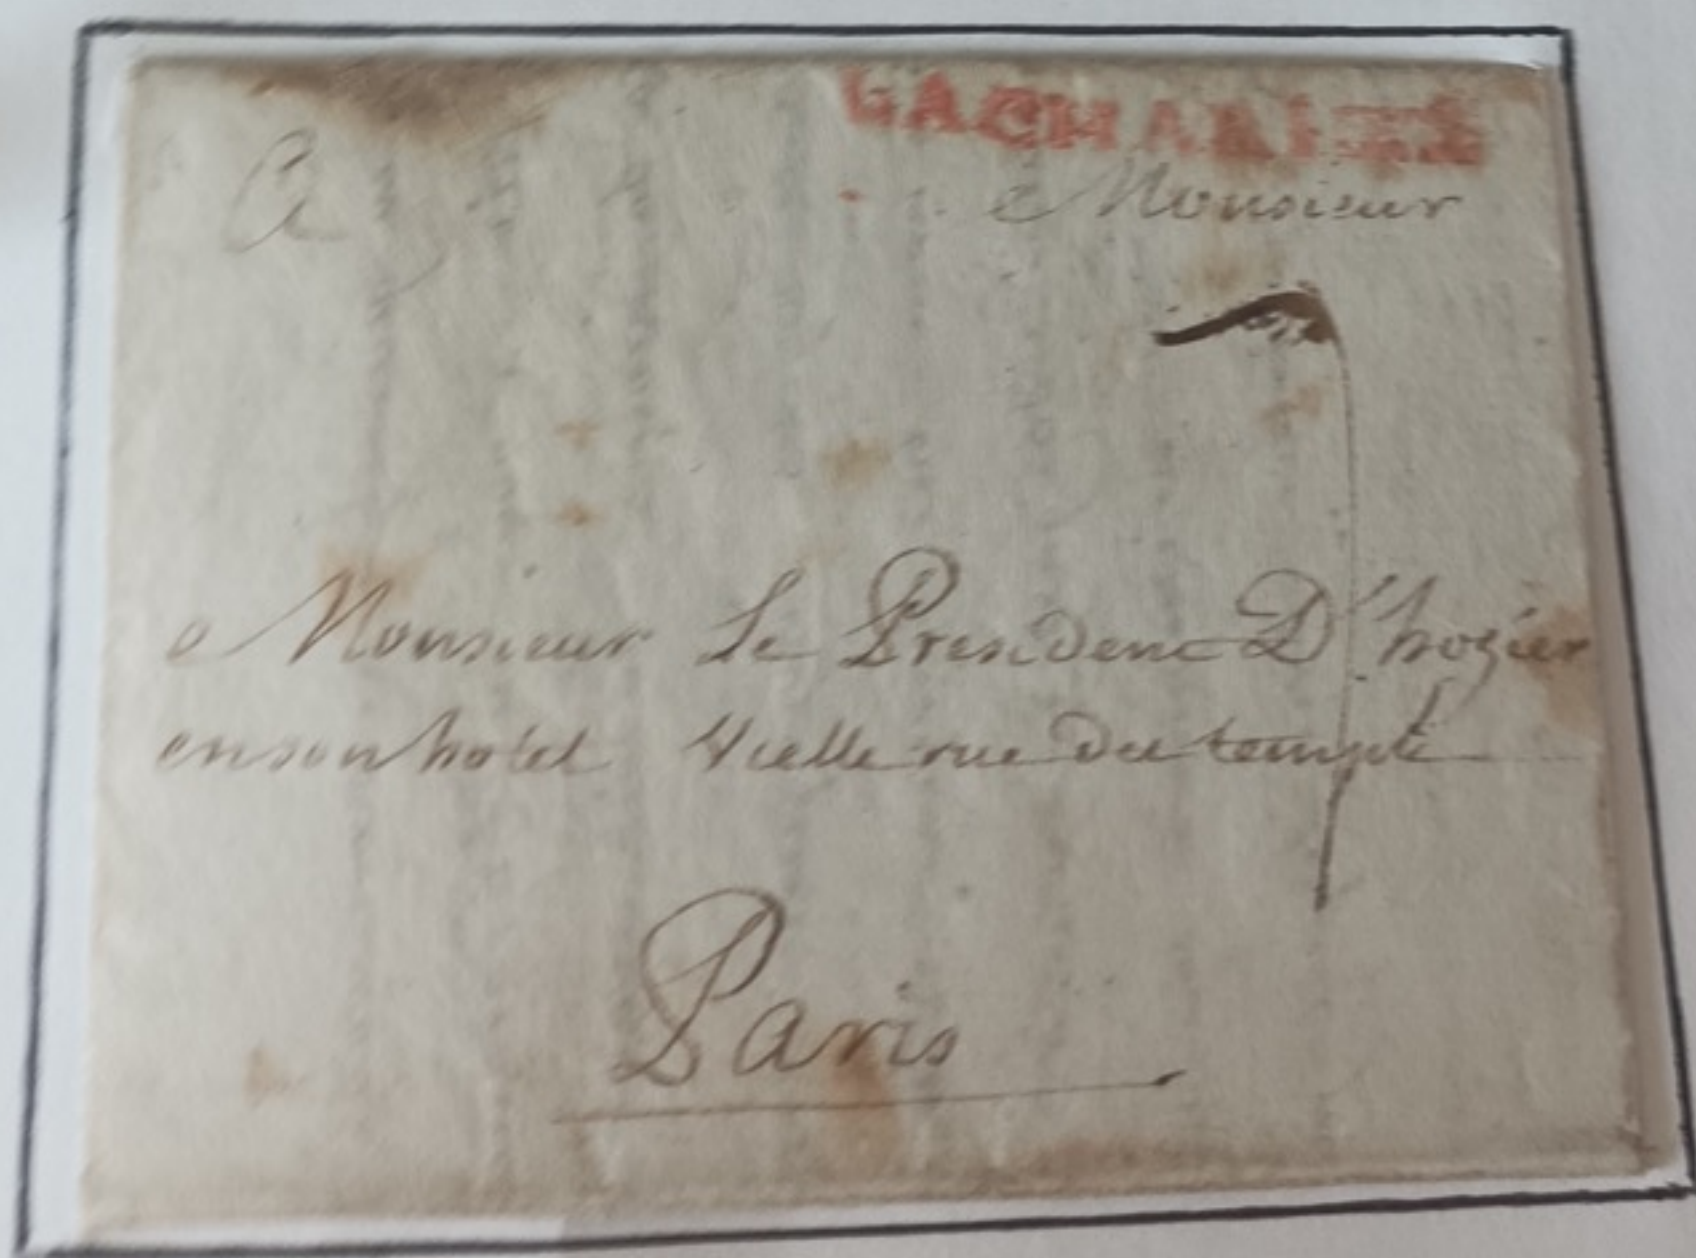 LACHARITÉ
A Monsieur
Monsieur Le President D'hozier
en son hotel Vielle rue du temple
Paris
7